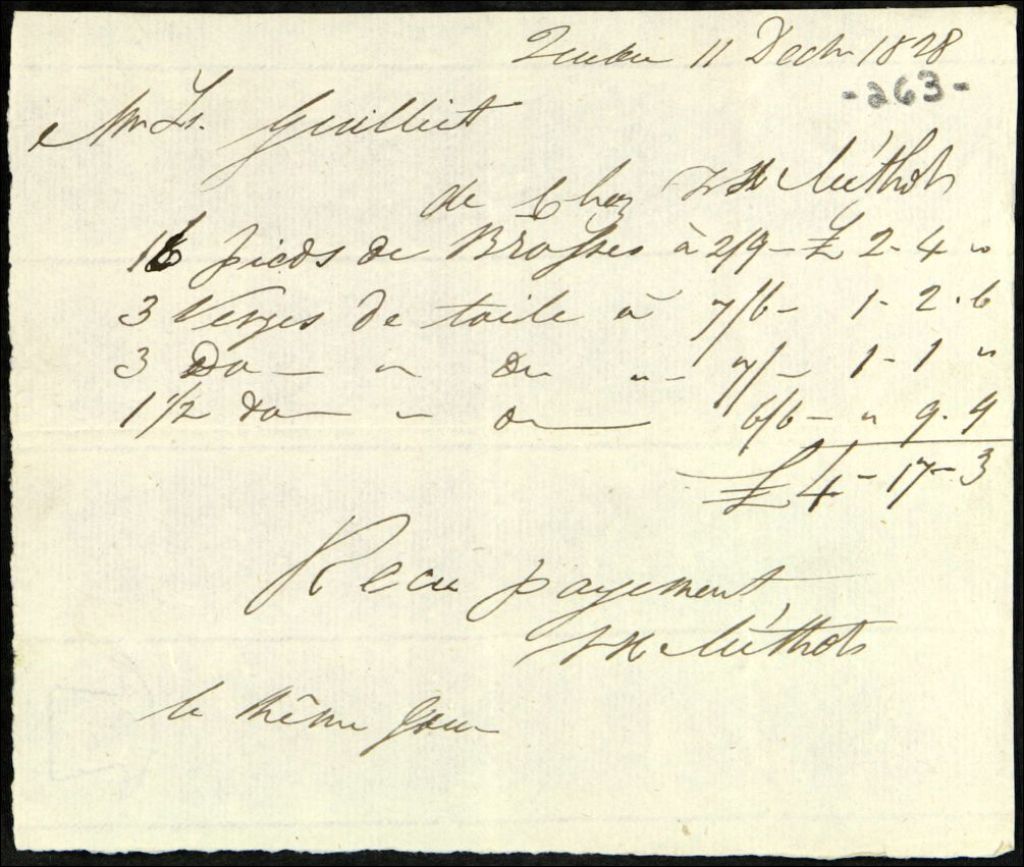 Quebec 11 Decbr 1828
-263-
Mr Ls. Guilliet
de Chez F X Méthots
16 pieds de Brosses à 2/9 - £ 2 - 4 "
3 Verges de toile à 7/6 - 1 - 2 - 6
3 Do - " Do " - 7/ - 1 - 1 "
1 1/2 do - - Do 6/6 - " 9 - 9
£ 4 - 17 - 3
Recu payement,
F X Méthots
le même Jour